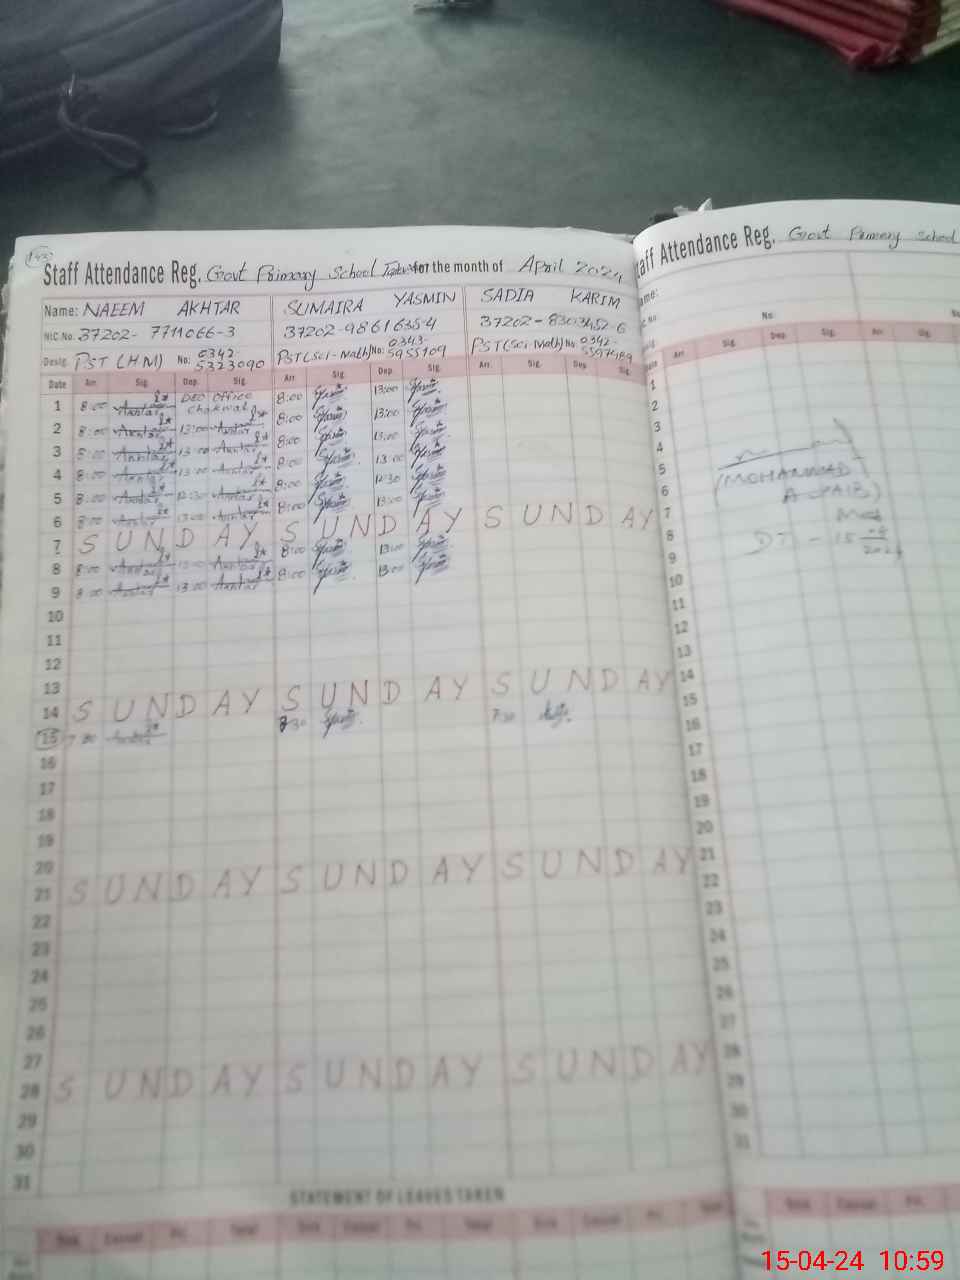 143
Staff Attendance Reg. Govt Primary School for the month of April 2024
Name: NAEEM AKHTAR SUMAIRA YASMIN SADIA KARIM
NIC No. 37202- 7711066-3 37202-9861635-4 37202-8303452-6
Desig. PST (HM) No: 0342- 5323090 PST(Sci-Math) No: 0343- 5955109 PST(Sci-Math) No: 0342-
Date Arr. Sig. Dep. Sig. Arr. Sig. Dep. Sig. Arr. Sig. Dep. Sig.
1 8:00 Akhtar DEO Office Chakwal 8:00 13:00
2 8:00 Akhtar 13:00 Akhtar 8:00 13:00
3 8:00 Akhtar 13:00 Akhtar 8:00 13:00
4 8:00 Akhtar 13:00 Akhtar 8:00 13:00
5 8:00 Akhtar 12:30 Akhtar 8:00 12:30
6 8:00 Akhtar 13:00 Akhtar 8:00 13:00
7 SUNDAY SUNDAY SUNDAY
8 8:00 Akhtar 13:00 Akhtar 8:00 13:00
9 8:00 Akhtar 13:00 Akhtar 8:00 13:00
10
11
12
13
14 SUNDAY SUNDAY SUNDAY
15 7:30 Akhtar 7:30
16
17
18
19
20
21 SUNDAY SUNDAY SUNDAY
22
23
24
25
26
27
28 SUNDAY SUNDAY SUNDAY
29
30
31
STATEMENT OF LEAVES TAKEN
Sick Casual Pri. Total Sick Casual Pri. Total Sick Casual Pri. Total
Staff Attendance Reg. Govt Primary School
Name:
NIC No. No:
Desig.
Date Arr. Sig. Dep. Sig. Arr.
1
2
3
4
5
6
7
8
9
10
11
12
13
14
15
16
17
18
19
20
21
22
23
24
25
26
27
28
29
30
31
(MOHAMMAD
DT - 15 04 2024
Sick Casual Pri.
15-04-24 10:59